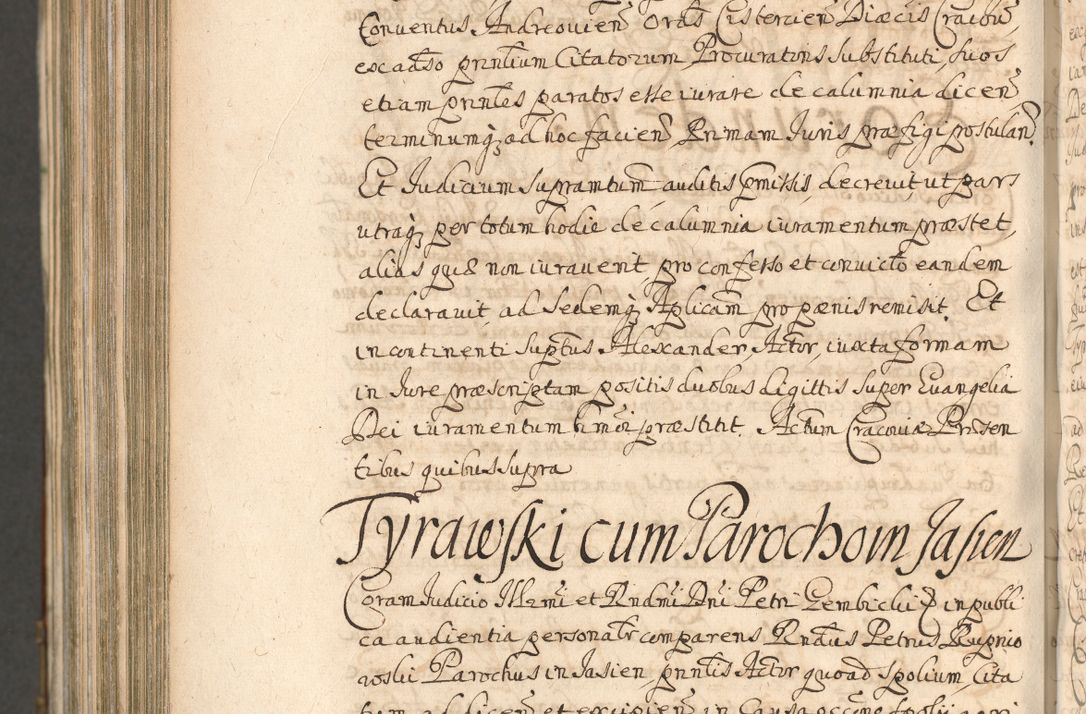 Conventus Andreovien Ordis Cistercien Diaecis Cracovien
ex adso prntium Citatorum Procuratoris substituti, suos
etiam prntes paratos esse iurare de calumnia dicen
terminumq ad hoc facien Primam Iuris praefigi postulan.
Et Iudicium supramtum auditis pmissis decrevit ut pars
utraq per totum hodie de calumnia iuramentum praestet,
alias quae non iuraverit pro confesso et convicto eandem
declaravit ad Sedemq Aplicam pro paenis remisit. Et
in continenti suptus Alexander Actor, iuxta formam
in Iure praescriptam positis duobus digittis super Evangelia
Dei iuramentum hmoi praestitit. Actum Cracoviae Prasen
tibus quibus supra
Tyrawski cum Parochom Jasien
Coram Iudicio Illmi et Rndmi Dni Petri Gembicki in publi
ca audientia personalr comparens Rndus Petrus
Parochus in Jasien, prntis Actor quoad spolium, Cita
tum ad dicen et excipien in Causa occne spolii